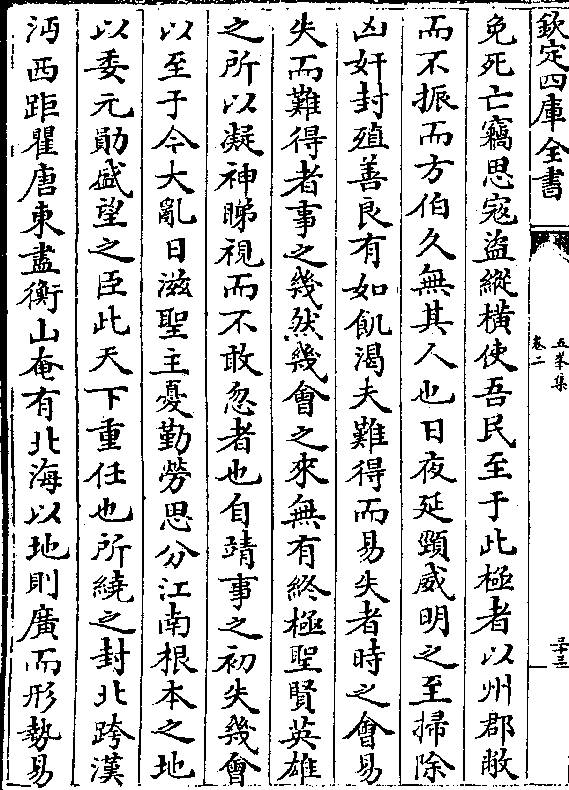 欽定四庫全書
五峯集
卷二
三十三
免死亡竊思寇盜縱橫使吾民至于此極者以州郡敝
而不振而方伯久無其人也日夜延頸威明之至掃除
凶奸封殖善良有如飢渴夫難得而易失者時之會易
失而難得者事之幾然幾會之來無有終極聖賢英雄
之所以凝神睇視而不敢忽者也自靖事之初失幾會
以至于今大亂日滋聖主憂勤勞思分江南根本之地
以委元勛盛望之臣此天下重任也所繞之封北跨漢
沔西距瞿唐東盡衡山奄有北海以地則廣而形勢易